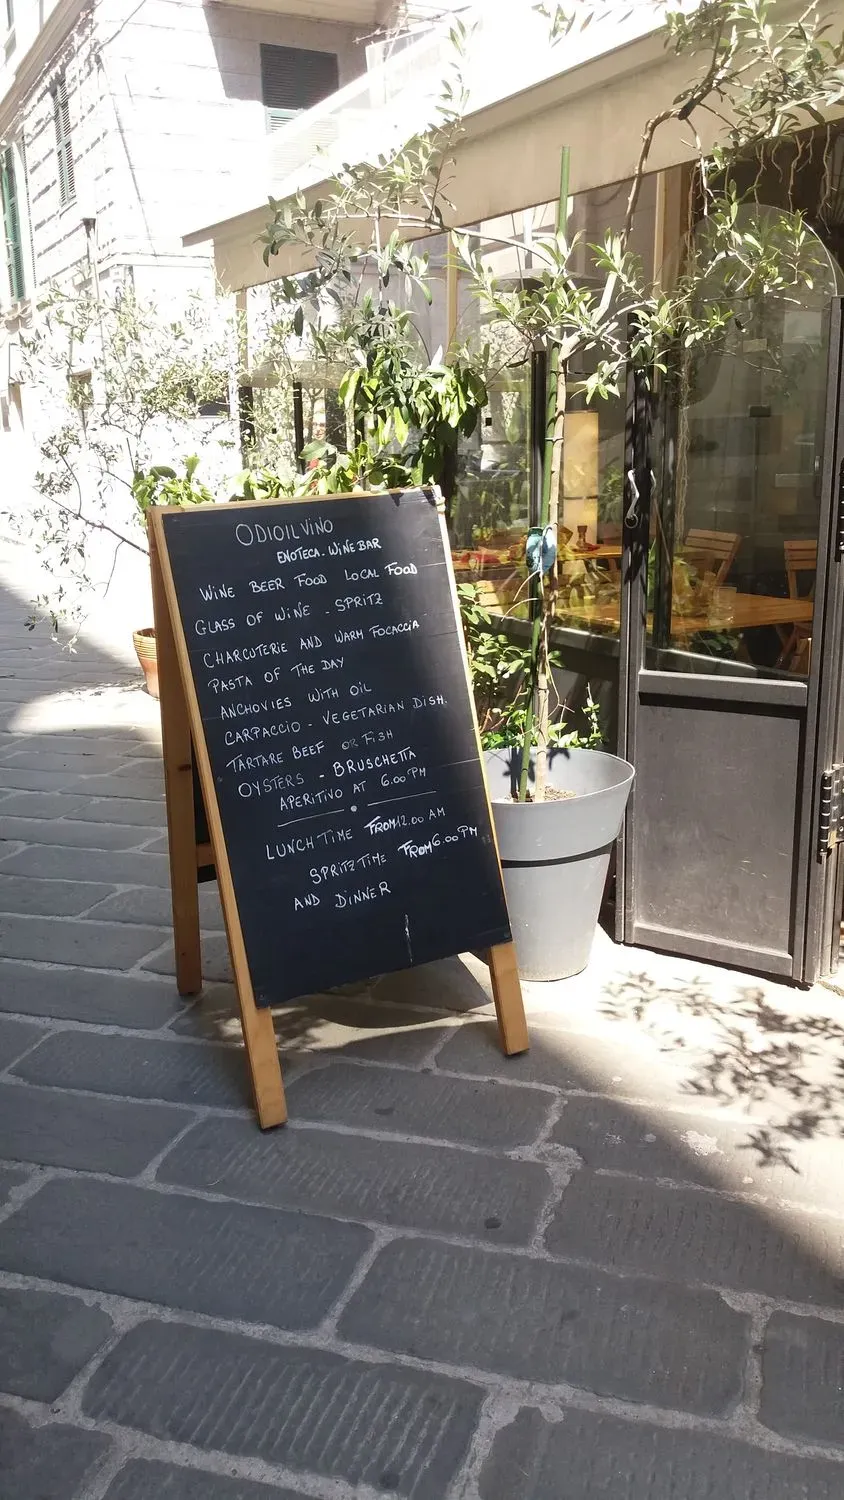 ODIOILVINO
ENOTECA. WINE BAR
WINE BEER FOOD LOCAL FOOD
GLASS OF WINE - SPRITZ
CHARCUTERIE AND WARM FOCACCIA
PASTA OF THE DAY
ANCHOVIES WITH OIL
CARPACCIO - VEGETARIAN DISH.
TARTARE BEEF OR FISH
OYSTERS - BRUSCHETTA
APERITIVO AT 6.00 PM
LUNCH TIME FROM 12.00 AM
SPRITZ TIME FROM 6.00 PM
AND DINNER